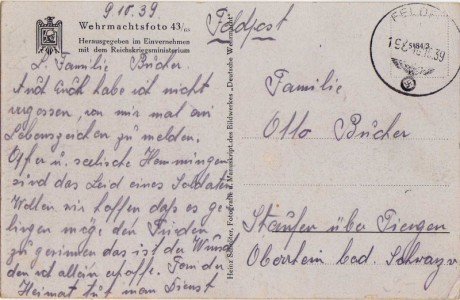 9 10.39
Wehrmachtsfoto 43/
Herausgegeben im Einvernehmen
mit dem Reichskriegsministerium
L. Familie Bücher.
Auch Euch habe ich nicht
vergessen, von mir mal ein
Lebenszeichen zu melden.
Opfer u. seelische Hemmungen
sind das Leid eines Soldaten
Wollen wir hoffen daß es ge-
lingen möge den Frieden
zu gewinnen das ist der Wunsch
den ich allein
Heimat tut man Dienst
Heinz Schröter, Fotografie u. Manuskript des Bildwerkes „Deutsche Wehrmacht"
Feldpost
FELDP
10.39
Familie
Otto Bücher
Staufen über Tiengen
Oberrhein bad. Schwarzw